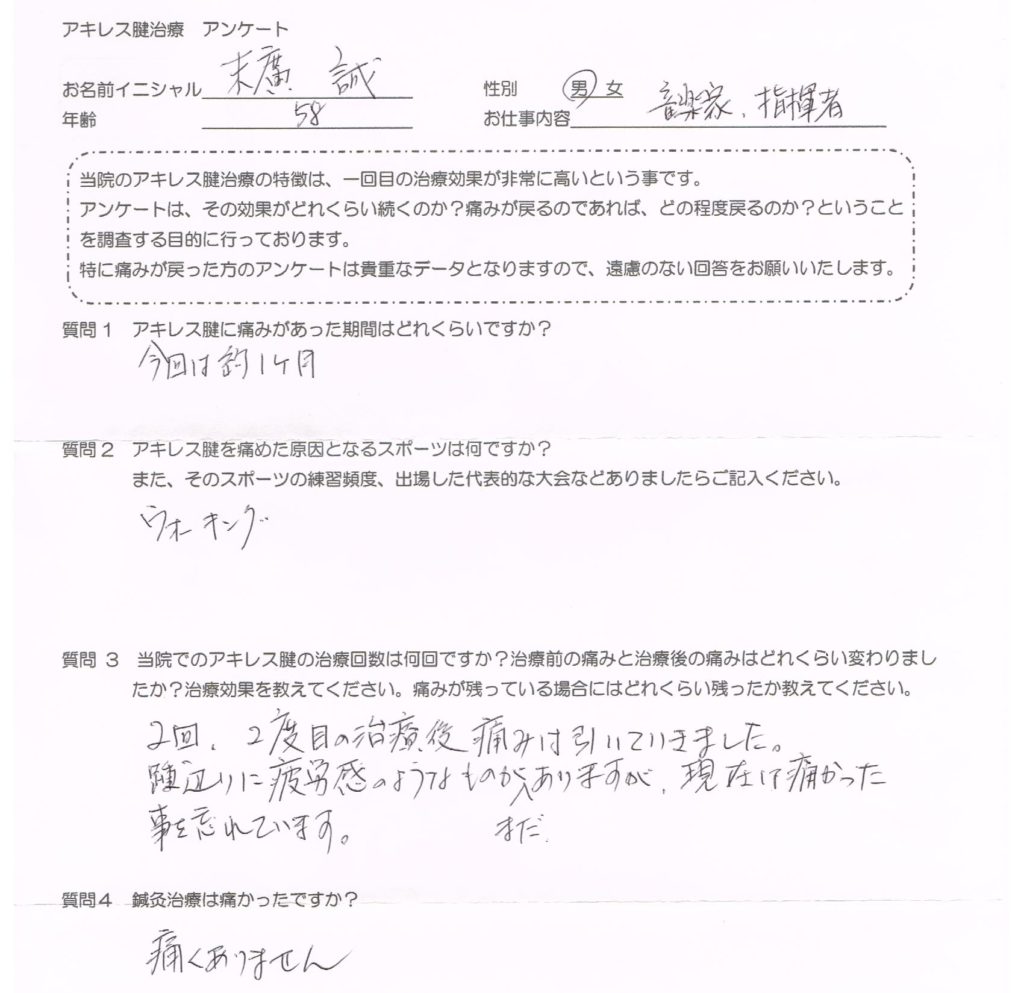 アキレス腱治療　アンケート
お名前イニシャル 末廣 誠　性別　男 女
年齢 58　お仕事内容 音楽家、指揮者
当院のアキレス腱治療の特徴は、一回目の治療効果が非常に高いという事です。
アンケートは、その効果がどれくらい続くのか？痛みが戻るのであれば、どの程度戻るのか？ということ
を調査する目的に行っております。
特に痛みが戻った方のアンケートは貴重なデータとなりますので、遠慮のない回答をお願いいたします。
質問１　アキレス腱に痛みがあった期間はどれくらいですか？
今回は約1ケ月
質問２　アキレス腱を痛めた原因となるスポーツは何ですか？
また、そのスポーツの練習頻度、出場した代表的な大会などありましたらご記入ください。
ウォーキング
質問 ３　当院でのアキレス腱の治療回数は何回ですか？治療前の痛みと治療後の痛みはどれくらい変わりまし
たか？治療効果を教えてください。痛みが残っている場合にはどれくらい残ったか教えてください。
2回、2度目の治療後痛みは引いていきました。
踵辺りに疲労感のようなものがまだありますが、現在は痛かった
事を忘れています。
質問４　鍼灸治療は痛かったですか？
痛くありません